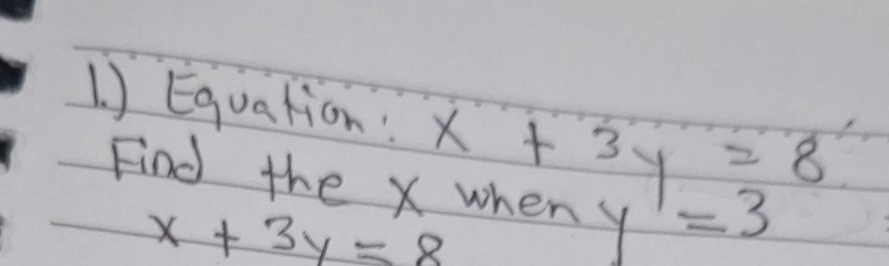 1.) Equation: x + 3y = 8
Find the x when y = 3
x + 3y = 8